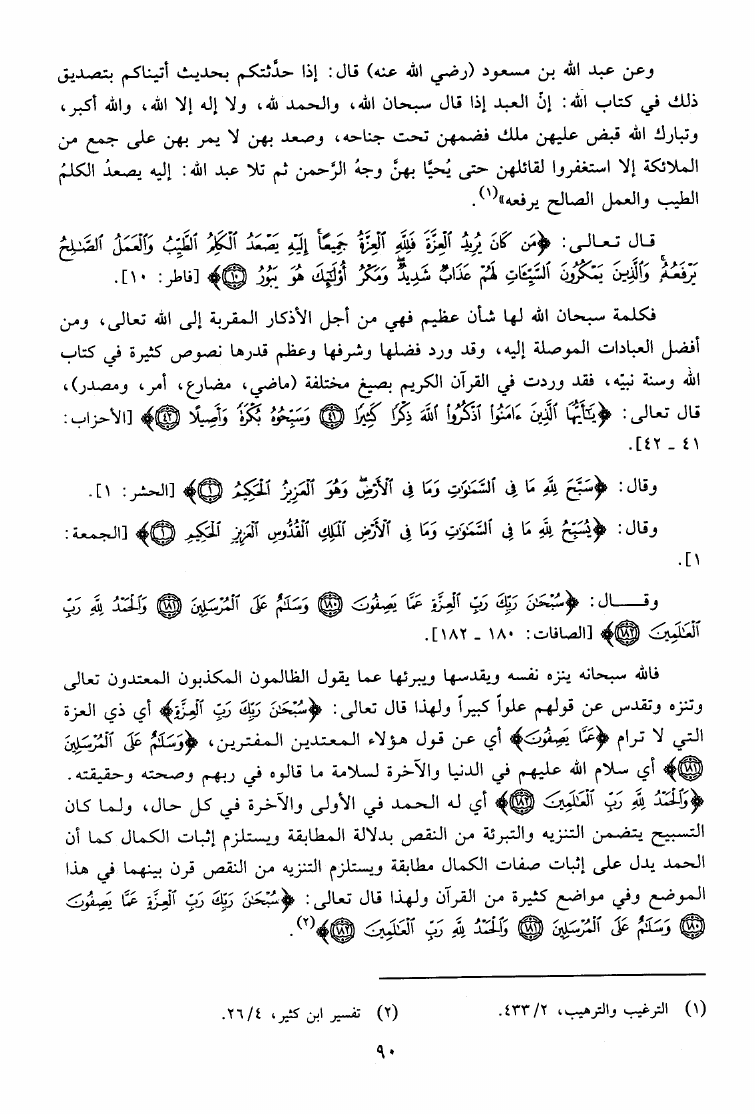 وعن عبد الله بن مسعود (رضي الله عنه) قال: إذا حدَّثتكم بحديث أتيناكم بتصديق
ذلك في كتاب الله: إنّ العبد إذا قال سبحان الله، والحمد لله، ولا إله إلا الله، والله أكبر،
وتبارك الله قبض عليهن ملك فضمهن تحت جناحه، وصعد بهن لا يمر بهن على جمع من
الملائكة إلا استغفروا لقائلهن حتى يُحيَّا بهنَّ وجهُ الرَّحمن ثم تلا عبد الله: إليه يصعدُ الكلمُ
الطيب والعمل الصالح يرفعه»(١).
قال تعالى: ﴿مَن كَانَ يُرِيدُ الْعِزَّةَ فَلِلَّهِ الْعِزَّةُ جَمِيعًا إِلَيْهِ يَصْعَدُ الْكَلِمُ الطَّيِّبُ وَالْعَمَلُ الصَّالِحُ
يَرْفَعُهُ وَالَّذِينَ يَمْكُرُونَ السَّيِّئَاتِ لَهُمْ عَذَابٌ شَدِيدٌ وَمَكْرُ أُوْلَٰئِكَ هُوَ يَبُورُ ﴿١٠﴾﴾ [فاطر: ١٠].
فكلمة سبحان الله لها شأن عظيم فهي من أجل الأذكار المقربة إلى الله تعالى، ومن
أفضل العبادات الموصلة إليه، وقد ورد فضلها وشرفها وعظم قدرها نصوص كثيرة في كتاب
الله وسنة نبيّه، فقد وردت في القرآن الكريم بصيغ مختلفة (ماضي، مضارع، أمر، ومصدر)،
قال تعالى: ﴿يَٰٓأَيُّهَا الَّذِينَ ءَامَنُوا اذْكُرُوا اللَّهَ ذِكْرًا كَثِيرًا ﴿٤١﴾ وَسَبِّحُوهُ بُكْرَةً وَأَصِيلًا ﴿٤٢﴾﴾ [الأحزاب:
٤١ - ٤٢].
وقال: ﴿سَبَّحَ لِلَّهِ مَا فِي السَّمَٰوَٰتِ وَمَا فِي الْأَرْضِ وَهُوَ الْعَزِيزُ الْحَكِيمُ ﴿١﴾﴾ [الحشر: ١].
وقال: ﴿يُسَبِّحُ لِلَّهِ مَا فِي السَّمَٰوَٰتِ وَمَا فِي الْأَرْضِ الْمَلِكِ الْقُدُّوسِ الْعَزِيزِ الْحَكِيمِ ﴿١﴾﴾ [الجمعة:
١].
وقال: ﴿سُبْحَٰنَ رَبِّكَ رَبِّ الْعِزَّةِ عَمَّا يَصِفُونَ ﴿١٨٠﴾ وَسَلَٰمٌ عَلَى الْمُرْسَلِينَ ﴿١٨١﴾ وَالْحَمْدُ لِلَّهِ رَبِّ
الْعَٰلَمِينَ ﴿١٨٢﴾﴾ [الصافات: ١٨٠ - ١٨٢].
فالله سبحانه ينزه نفسه ويقدسها ويبرئها عما يقول الظالمون المكذبون المعتدون تعالى
وتنزه وتقدس عن قولهم علواً كبيراً ولهذا قال تعالى: ﴿سُبْحَٰنَ رَبِّكَ رَبِّ الْعِزَّةِ﴾ أي ذي العزة
التي لا ترام ﴿عَمَّا يَصِفُونَ﴾ أي عن قول هؤلاء المعتدين المفترين، ﴿وَسَلَٰمٌ عَلَى الْمُرْسَلِينَ
﴿١٨١﴾﴾ أي سلام الله عليهم في الدنيا والآخرة لسلامة ما قالوه في ربهم وصحته وحقيقته.
﴿وَالْحَمْدُ لِلَّهِ رَبِّ الْعَٰلَمِينَ ﴿١٨٢﴾﴾ أي له الحمد في الأولى والآخرة في كل حال، ولما كان
التسبيح يتضمن التنزيه والتبرئة من النقص بدلالة المطابقة ويستلزم إثبات الكمال كما أن
الحمد يدل على إثبات صفات الكمال مطابقة ويستلزم التنزيه من النقص قرن بينهما في هذا
الموضع وفي مواضع كثيرة من القرآن ولهذا قال تعالى: ﴿سُبْحَٰنَ رَبِّكَ رَبِّ الْعِزَّةِ عَمَّا يَصِفُونَ
﴿١٨٠﴾ وَسَلَٰمٌ عَلَى الْمُرْسَلِينَ ﴿١٨١﴾ وَالْحَمْدُ لِلَّهِ رَبِّ الْعَٰلَمِينَ ﴿١٨٢﴾﴾(٢).
(١) الترغيب والترهيب، ٤٣٣/٢. (٢) تفسير ابن كثير، ٢٦/٤.
٩٠